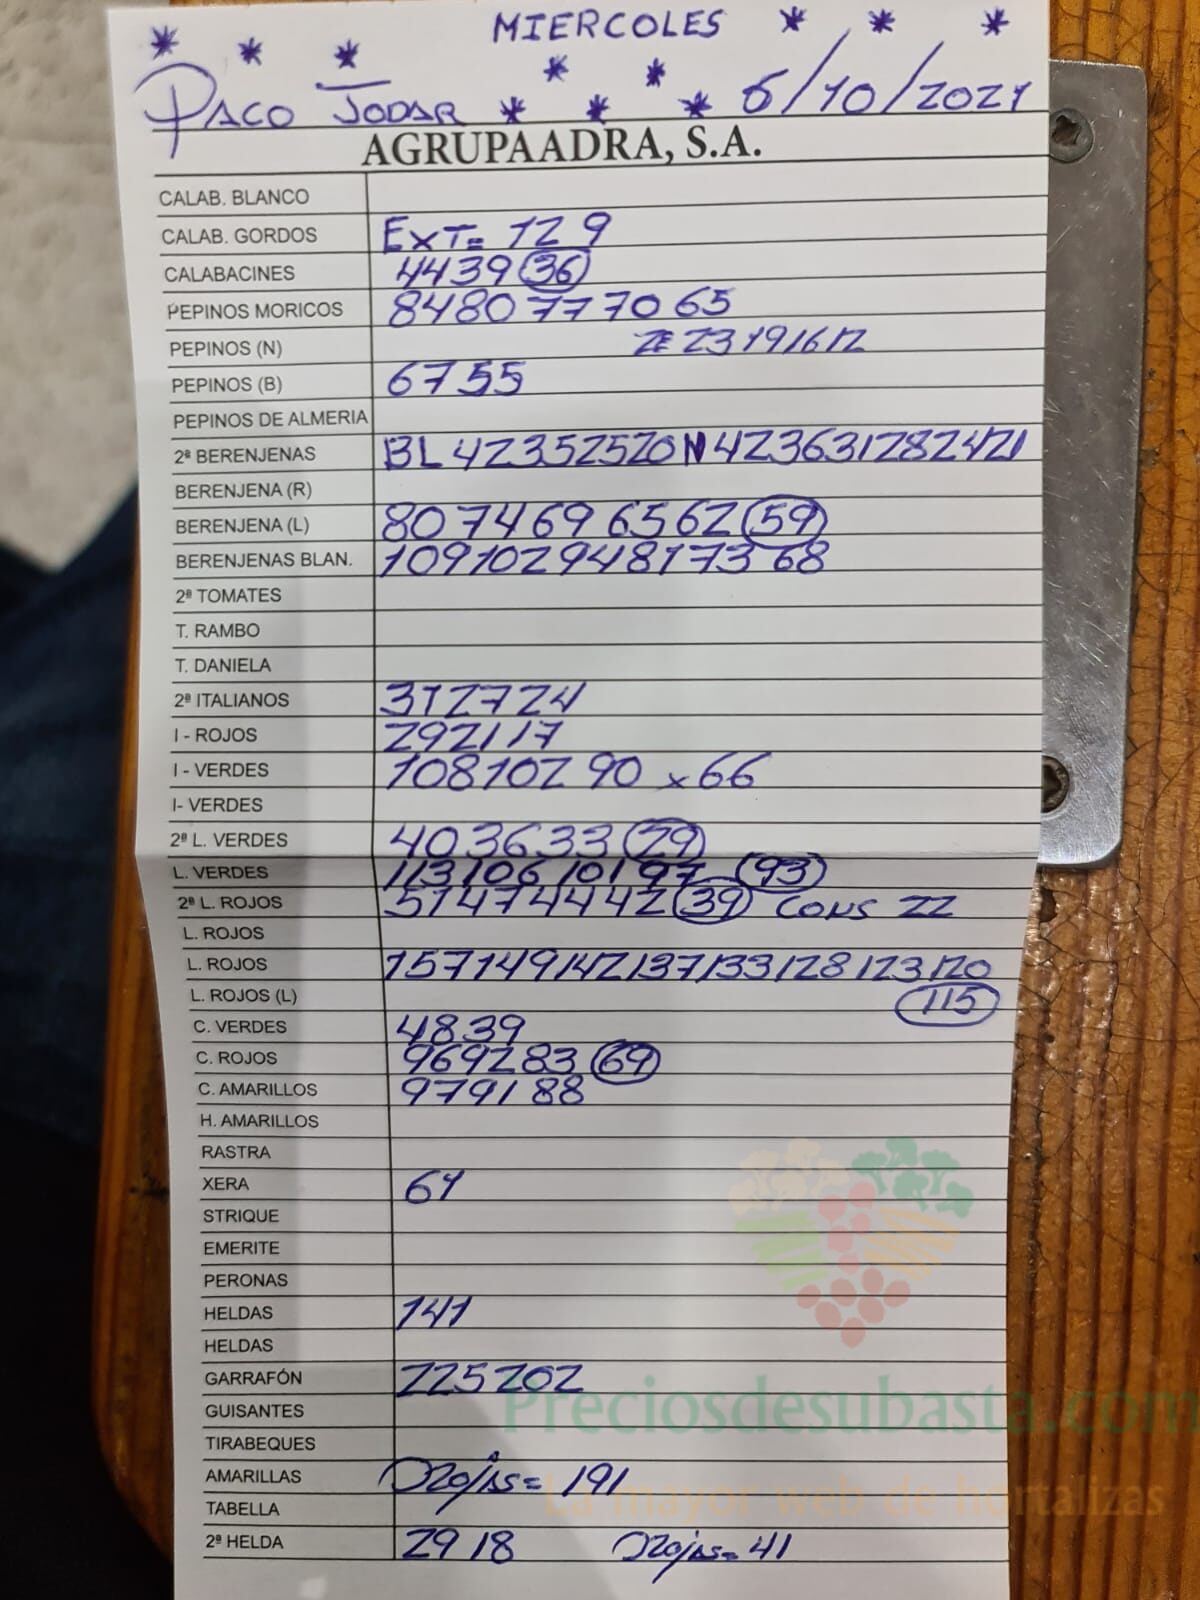 MIERCOLES
PACO JODAR 6/10/2021
AGRUPAADRA, S.A.
CALAB. BLANCO
CALAB. GORDOS EXT= 129
CALABACINES 44 39 36
PEPINOS MORICOS 84 80 77 70 65
PEPINOS (N) 23 19 16 12
PEPINOS (B) 67 55
PEPINOS DE ALMERIA
2ª BERENJENAS BL 42 35 25 20 N 42 36 31 28 24 21
BERENJENA (R)
BERENJENA (L) 80 74 69 65 62 59
BERENJENAS BLAN. 109 102 94 81 73 68
2ª TOMATES
T. RAMBO
T. DANIELA
2ª ITALIANOS 31 27 24
I - ROJOS 29 21 17
I - VERDES 108 102 90 x 66
I- VERDES
2ª L. VERDES 40 36 33 29
L. VERDES 113 106 101 97 93
2ª L. ROJOS 51 47 44 42 39 CONS 22
L. ROJOS
L. ROJOS 157 149 142 137 133 128 123 120
L. ROJOS (L) 115
C. VERDES 48 39
C. ROJOS 96 92 83 69
C. AMARILLOS 97 91 88
H. AMARILLOS
RASTRA
XERA 61
STRIQUE
EMERITE
PERONAS
HELDAS 141
HELDAS
GARRAFÓN 225 202
Preciosdesubasta.com
GUISANTES
TIRABEQUES
AMARILLAS Rojas= 191
La mayor web de hortalizas
TABELLA
2ª HELDA 29 18 Rojas= 41